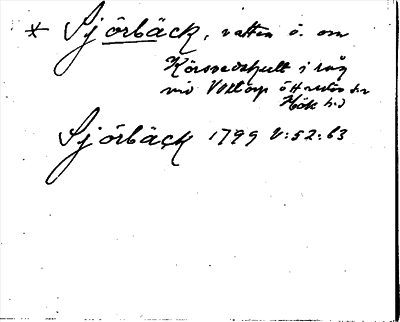 * Sjörbäck, vatten ö. om
Körsvedshult i råg
vid Voltorp
Hök h.)
Sjörbäck 1799 V:52:63